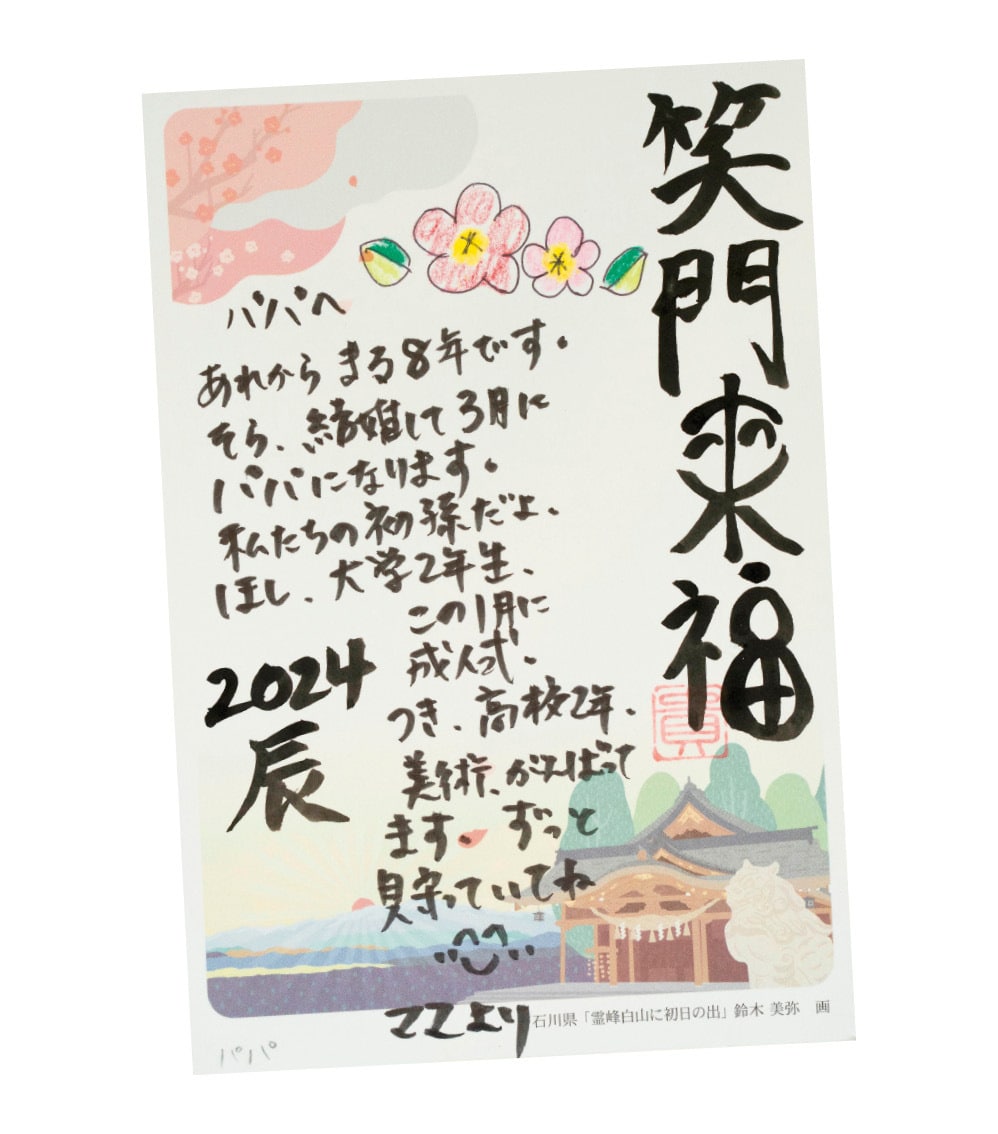 笑門来福
パパへ
あれから まる8年です。
そら、結婚して3月に
パパになります。
私たちの初孫だよ、
ほし、大学2年生、
この1月に
成人式。
つき、高校2年、
美術、がんばって
ます。ずっと
見守っていてね
ママより
2024
辰
石川県「霊峰白山に初日の出」鈴木 美弥 画
パパ